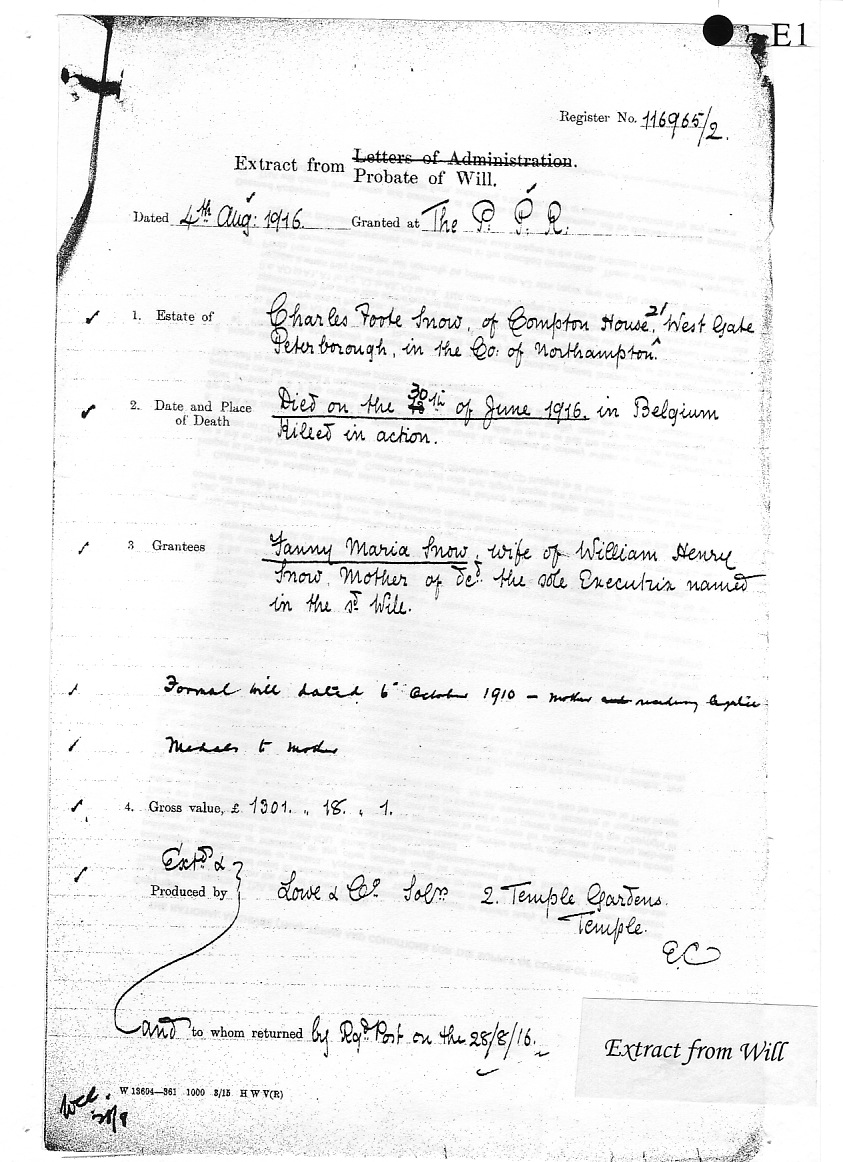 E1
Register No. 116965/2.
Extract from Letters of Administration.
Probate of Will.
Dated 4th Aug: 1916. Granted at The P. P. R.
1. Estate of Charles Foote Snow, of Compton House, 21 West Gate
Peterborough, in the Co: of Northampton.
2. Date and Place of Death Died on the 30th of June 1916. in Belgium
Killed in action.
3 Grantees Fanny Maria Snow, wife of William Henry
Snow, Mother of decd. the sole Executrix named
in the sd Will.
Formal will dated 6th October 1910 – mother and residuary legatee
Medals to mother
4. Gross value, £ 1301. „ 18. „ 1.
Extd &
Produced by Lowe & Co. Solrs 2. Temple Gardens.
Temple.
E.C
and to whom returned by Rgd. Post on the 28/8/16.
Extract from Will
W 13604—361 1000 3/15 H W V(R)